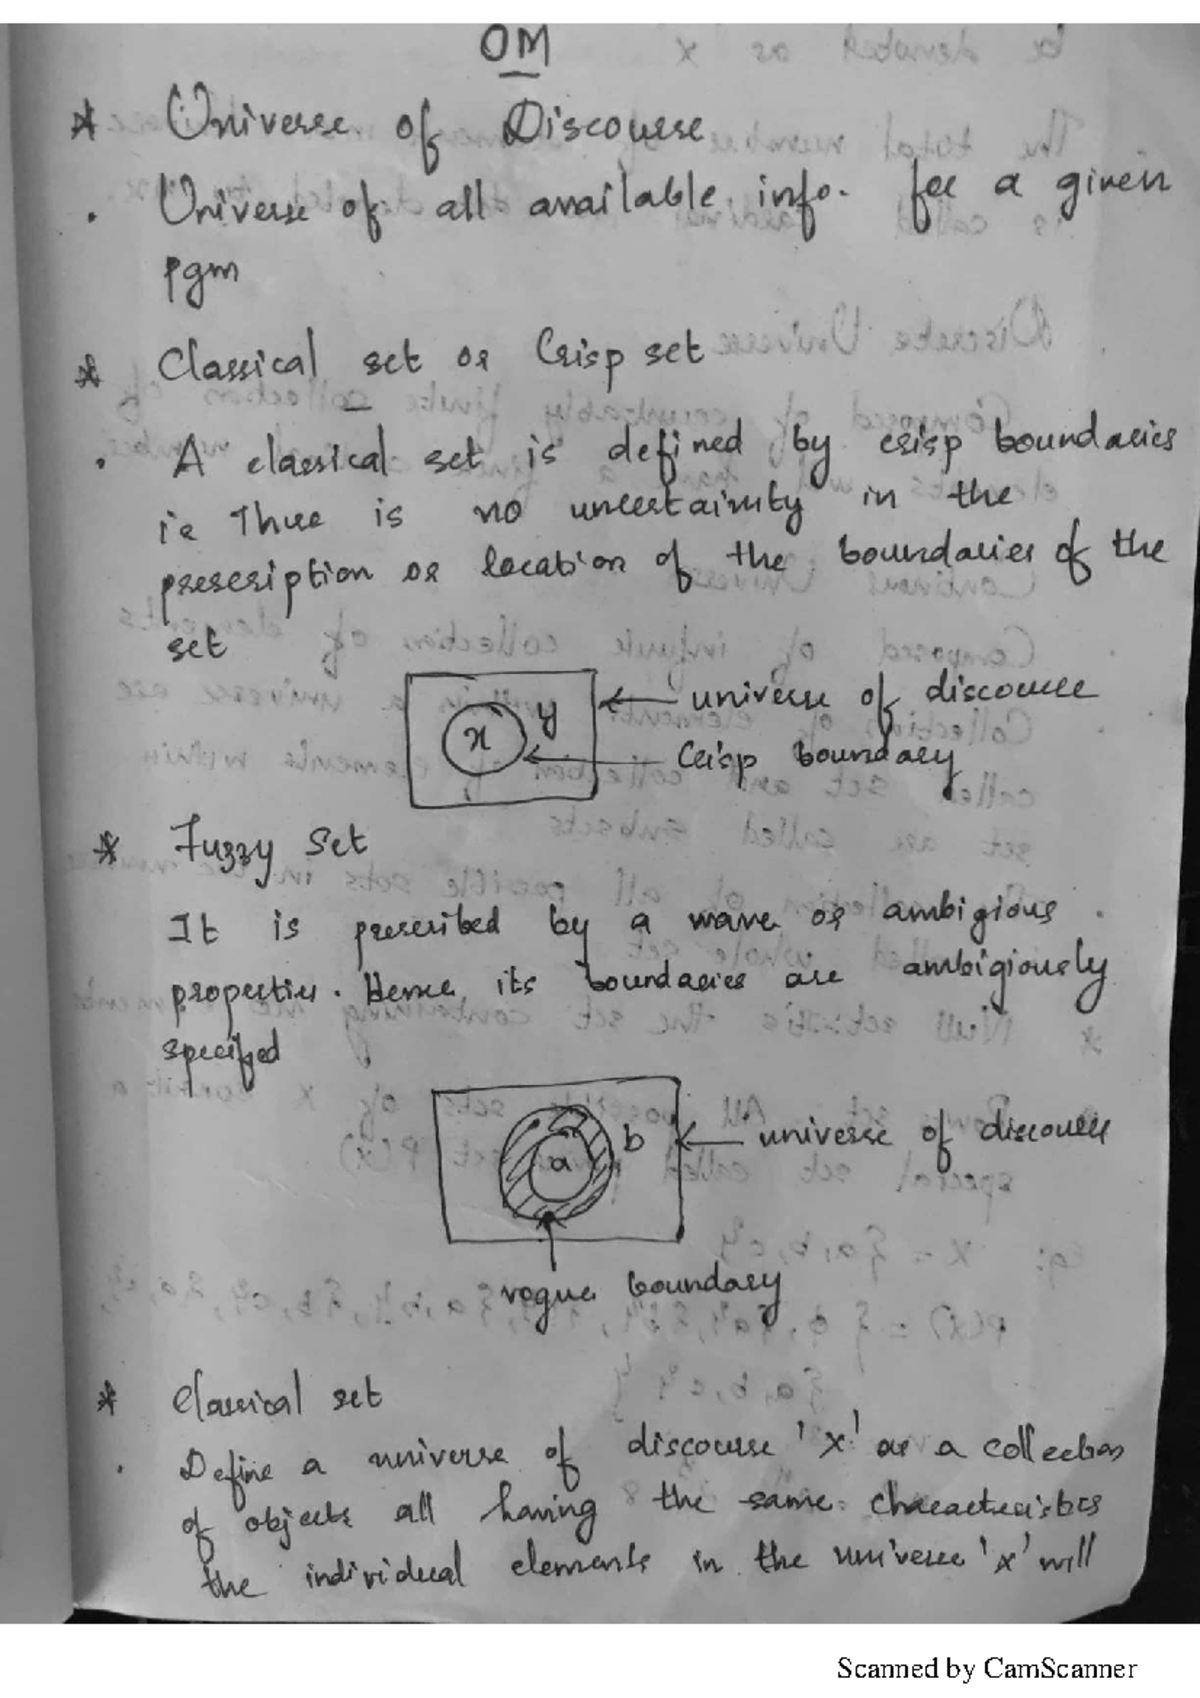 OM
* Universe of Discourse
. Universe of all available info. for a given
pgm
* Classical set or Crisp set
. A classical set is defined by crisp boundaries
ie There is no uncertainity in the
prescription or location of the boundaries of the
set
x y ← universe of discourse
← Crisp boundary
* Fuzzy Set
It is prescribed by a wave or ambigious
properties. Hence its boundaries are ambigiously
specified
a b ← universe of discourse
vogue boundary
* Classical set
. Define a universe of discourse 'x' as a collection
of objects all having the same characteristics
the individual elements in the universe 'x' will
Scanned by CamScanner